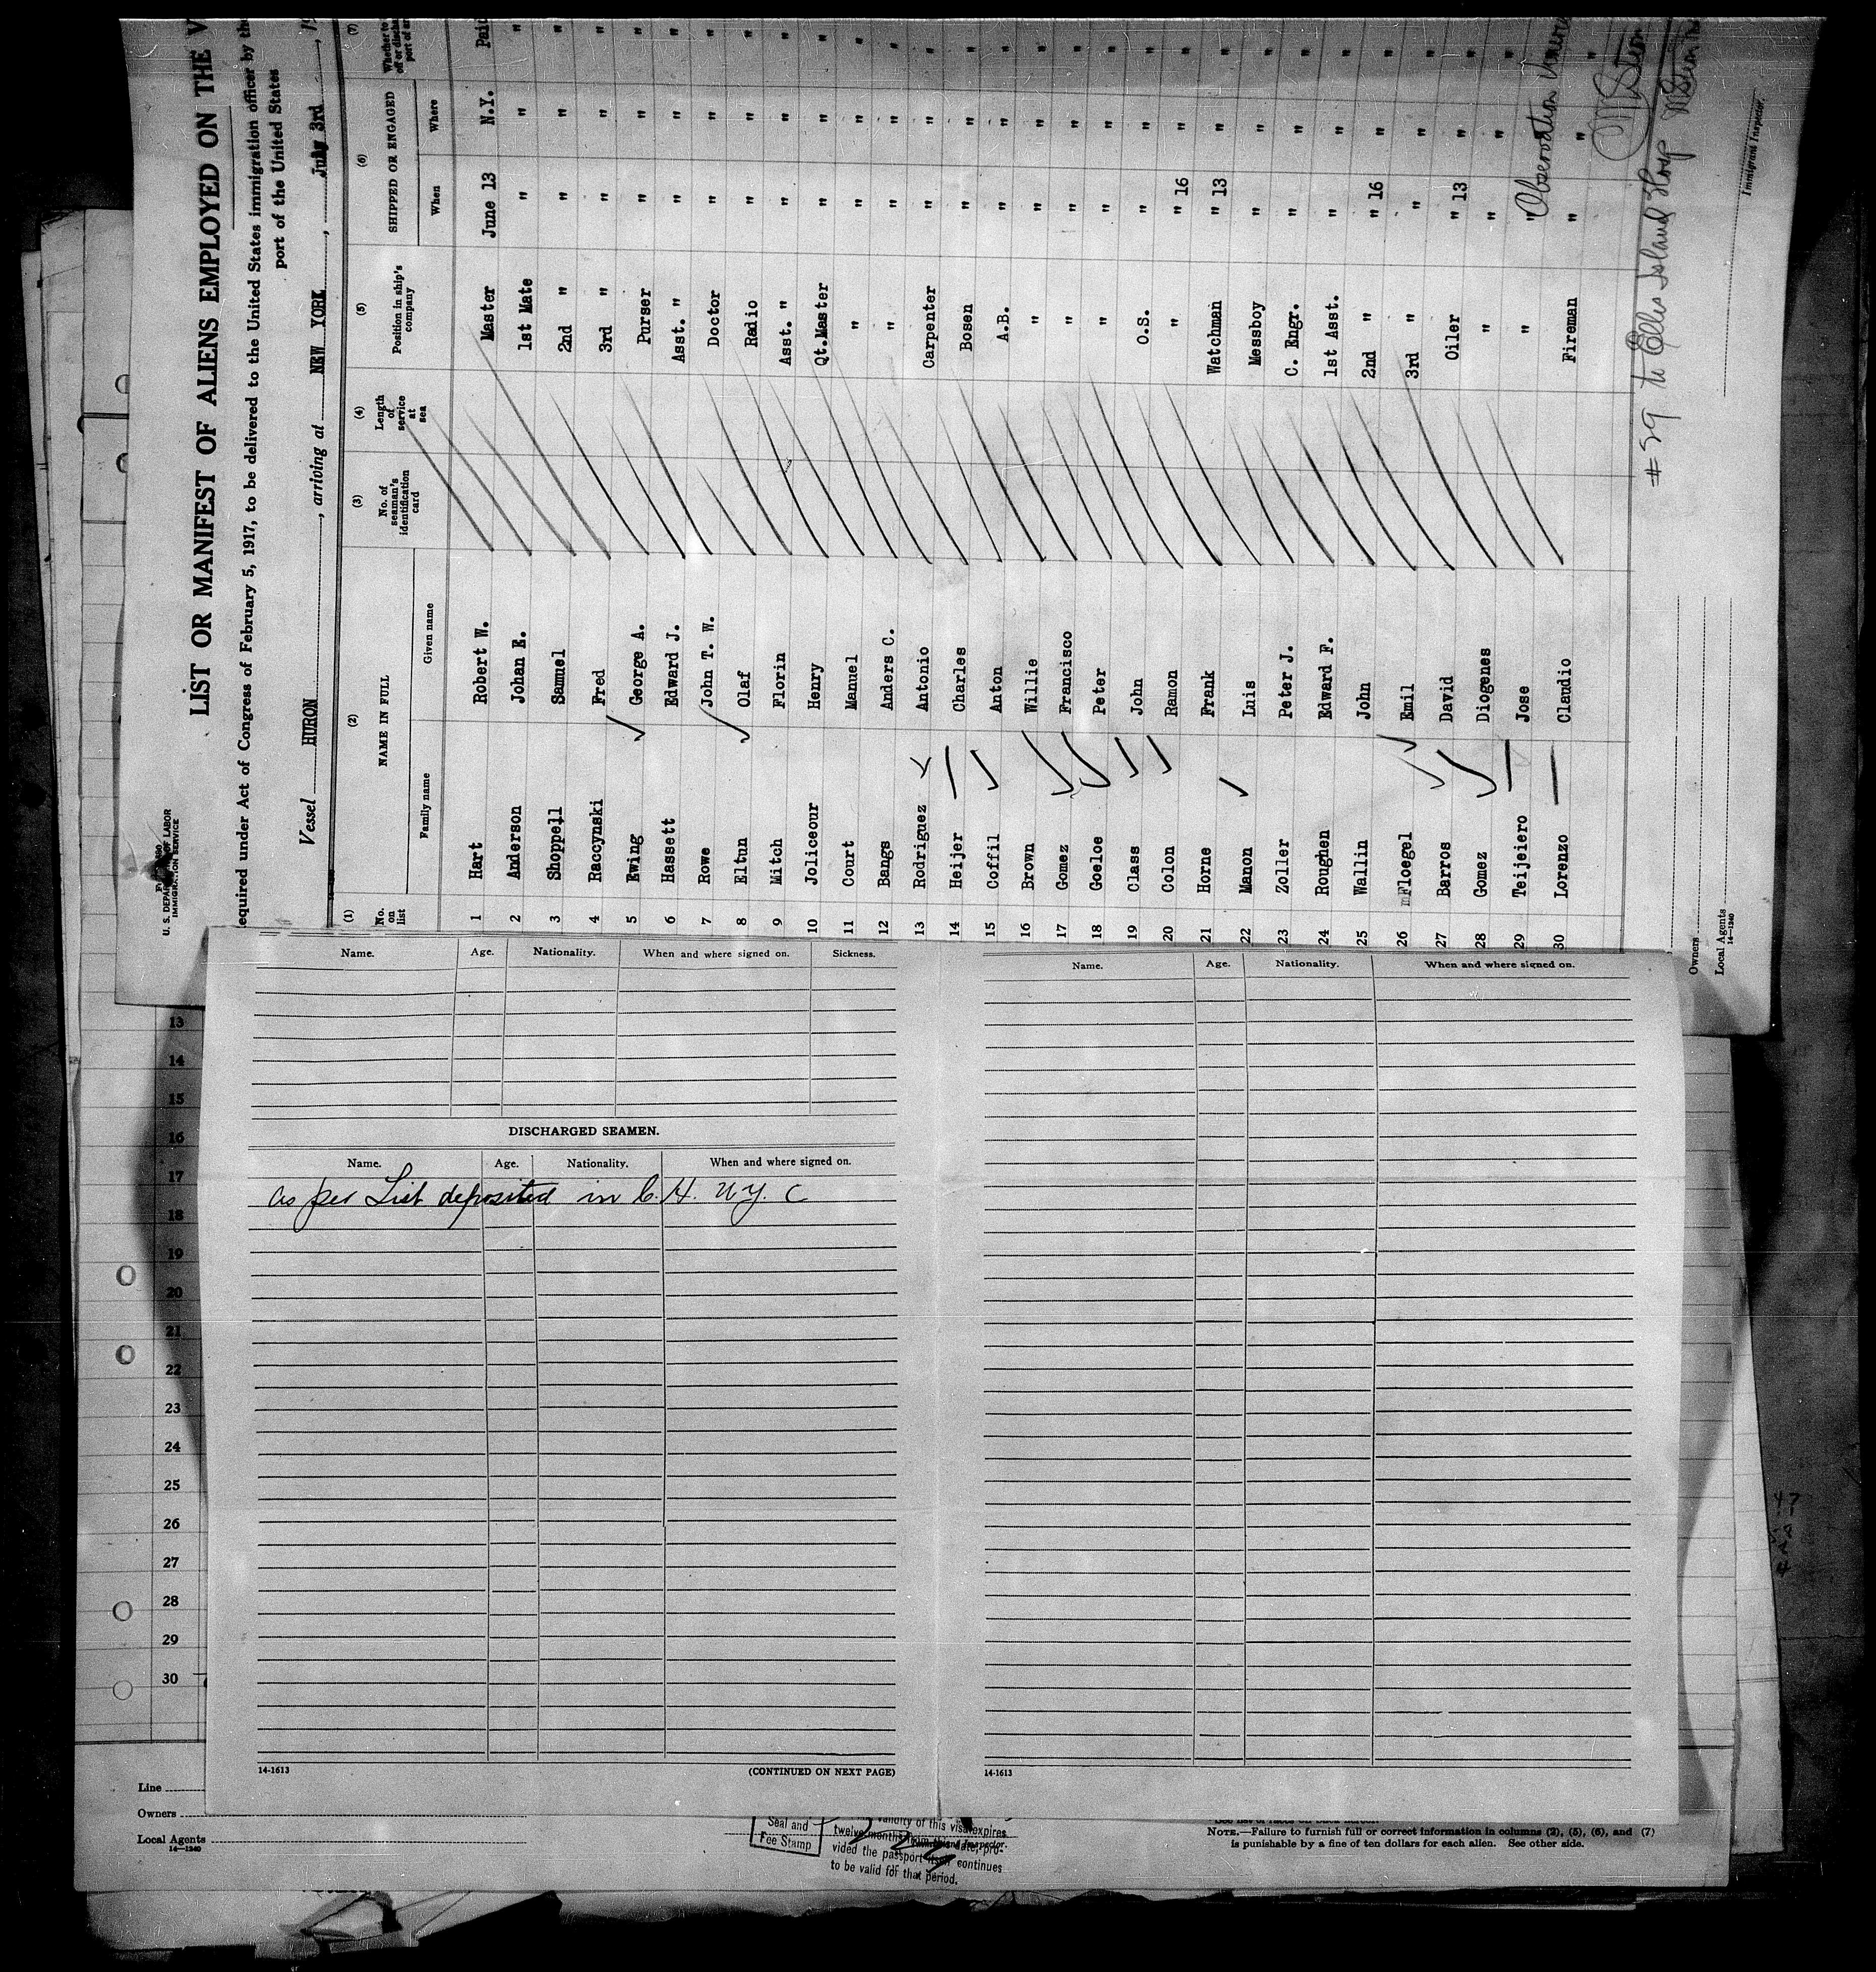 Form 680
U. S. DEPARTMENT OF LABOR
IMMIGRATION SERVICE
LIST OR MANIFEST OF ALIENS EMPLOYED ON THE V
equired under Act of Congress of February 5, 1917, to be delivered to the United States immigration officer by the
port of the United States
Vessel HURON , arriving at NEW YORK , July 3rd , 19
(1) (2) (3) (4) (5) (6) (7)
No. on list NAME IN FULL No. of seaman's identification card Length of service at sea Position in ship's company SHIPPED OR ENGAGED
Family name Given name When Where
1 Hart Robert W. Master June 13 N.Y. Paid
2 Anderson Johan E. 1st Mate " " "
3 Shoppell Samuel 2nd " " " "
4 Raccynski Fred 3rd " " " "
5 Ewing George A. Purser " " "
6 Hassett Edward J. Asst. " " " "
7 Rowe John T. W. Doctor " " "
8 Eltun Olaf Radio " " "
9 Mitch Florin Asst. " " " "
10 Joliceour Henry Qt.Master " " "
11 Court Manuel " " " "
12 Bangs Anders C. " " " "
13 Rodriguez Antonio Carpenter " " "
14 Heijer Charles Bosen " " "
15 Coffil Anton A.B. " " "
16 Brown Willie " " " "
17 Gomez Francisco " " " "
18 Goeloe Peter " " " "
19 Class John O.S. " " "
20 Colon Ramon " " 16 " "
21 Horne Frank Watchman " 13 " "
22 Manon Luis Messboy " " "
23 Zoller Peter J. C. Engr. " " "
24 Roughen Edward F. 1st Asst. " " "
25 Wallin John 2nd " " 16 " "
26 Floegel Emil 3rd " " " "
27 Barros David Oiler " 13 " "
28 Gomez Diogenes " " " "
29 Teijeiero Jose " " "
30 Lorenzo Claudio Fireman " " "
Observation
#29 to Ellis Island Hosp
Immigrant Inspector.
Owners
Local Agents
14—1240
Name. Age. Nationality. When and where signed on. Sickness.
DISCHARGED SEAMEN.
Name. Age. Nationality. When and where signed on.
As per List deposited in C. H. N.Y. C
14-1613
(CONTINUED ON NEXT PAGE)
Name. Age. Nationality. When and where signed on.
14-1613
13
14
15
16
17
18
19
20
21
22
23
24
25
26
27
28
29
30
Line
Owners
Local Agents
14—1240
Seal and
Fee Stamp
validity of this visa expires
twelve months from this date, pro-
vided the passport itself continues
to be valid for that period.
Immigrant Inspector.
NOTE.—Failure to furnish full or correct information in columns (2), (5), (6), and (7)
is punishable by a fine of ten dollars for each alien. See other side.